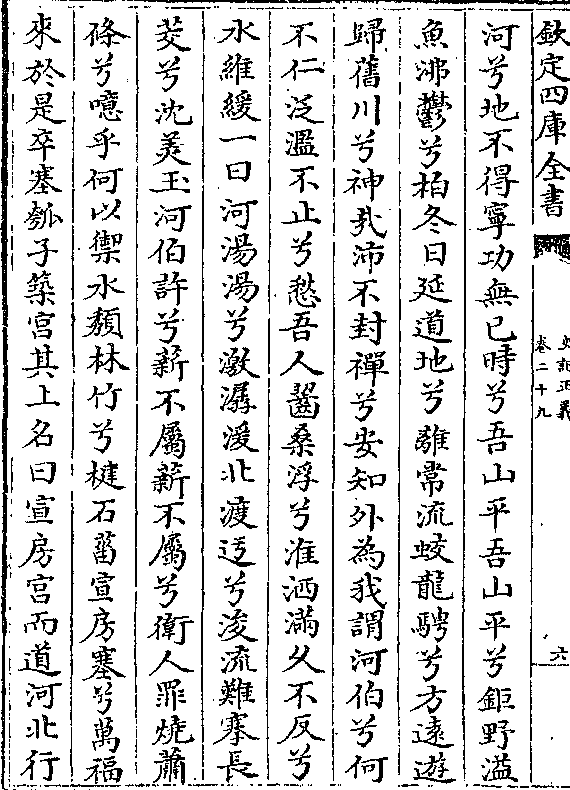 欽定四庫全書
史記正義
卷二十九
六
河兮地不得寧功無已時兮吾山平吾山平兮鉅野溢
魚沸鬱兮柏冬日延道地兮離常流蛟龍騁兮方逺遊
歸舊川兮神㢤沛不封禪兮安知外為我謂河伯兮何
不仁泛濫不止兮愁吾人齧桑浮兮淮泗滿乆不反兮
水維緩一曰河湯湯兮激潺湲北渡迃兮浚流難搴長
茭兮沈美玉河伯許兮薪不屬薪不屬兮衛人罪燒蕭
條兮噫乎何以禦水頽林竹兮楗石菑宣房塞兮萬福
來於是卒塞瓠子築宮其上名曰宣房宮而道河北行